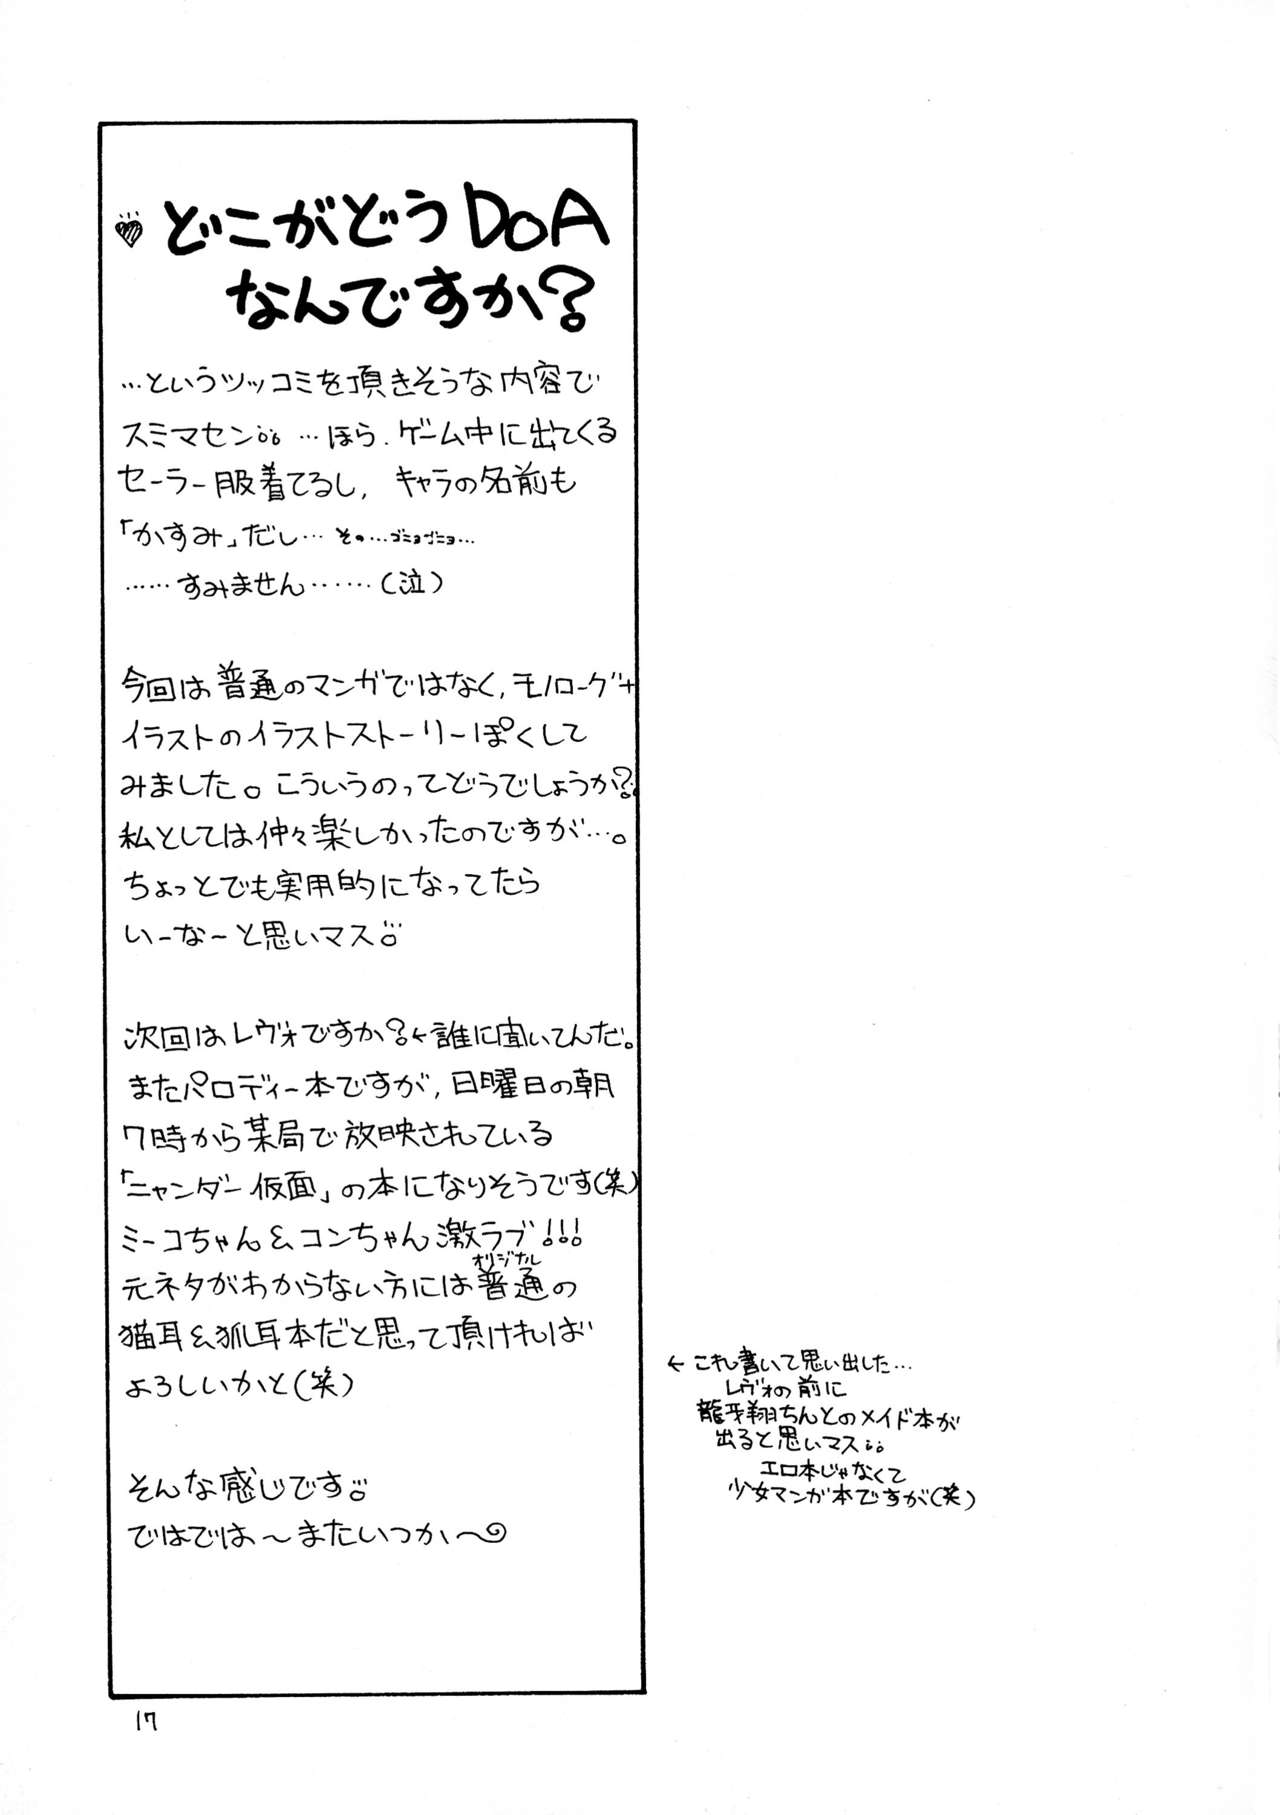 どこがどうDoA
なんですか?
…というツッコミを頂きそうな内容で
スミマセン…ほら、ゲーム中に出てくる
セーラー服着てるし、キャラの名前も
「かすみ」だし…その…ゴニョゴニョ…
……すみません……(泣)
今回は普通のマンガではなく、モノローグ+
イラストのイラストストーリーぽくして
みました。こういうのってどうでしょうか?
私としては仲々楽しかったのですが…。
ちょっとでも実用的になってたら
いーなーと思いマス
次回はレヴォですか?←誰に聞いてんだ。
またパロディー本ですが、日曜日の朝
7時から某局で放映されている
「ニャンダー仮面」の本になりそうです(笑)
ミーコちゃん&コンちゃん激ラブ!!!
オリジナル
元ネタがわからない方には普通の
猫耳&狐耳本だと思って頂ければ
よろしいかと(笑)
そんな感じです
ではでは〜またいつか〜
←これ書いて思い出した…
レヴォの前に
龍牙翔ちんとのメイド本が
出ると思いマス
エロ本じゃなくて
少女マンガ本ですが(笑)
17